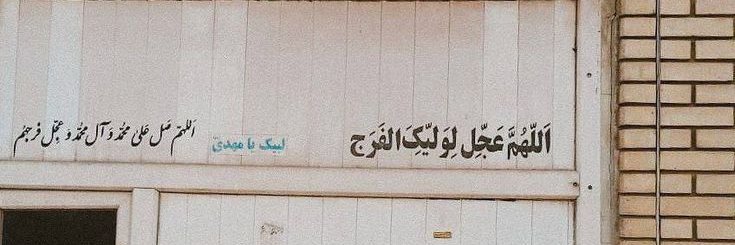 اَللّهُمَّ عَجِّل لِوَلیِّکَ الفَرَج
لبیک یا مهدی
اَللهمّ صَل عَلیٰ مُحمَّد وَ آلِ مُحمَّد وَ عَجِّل فرجهُم